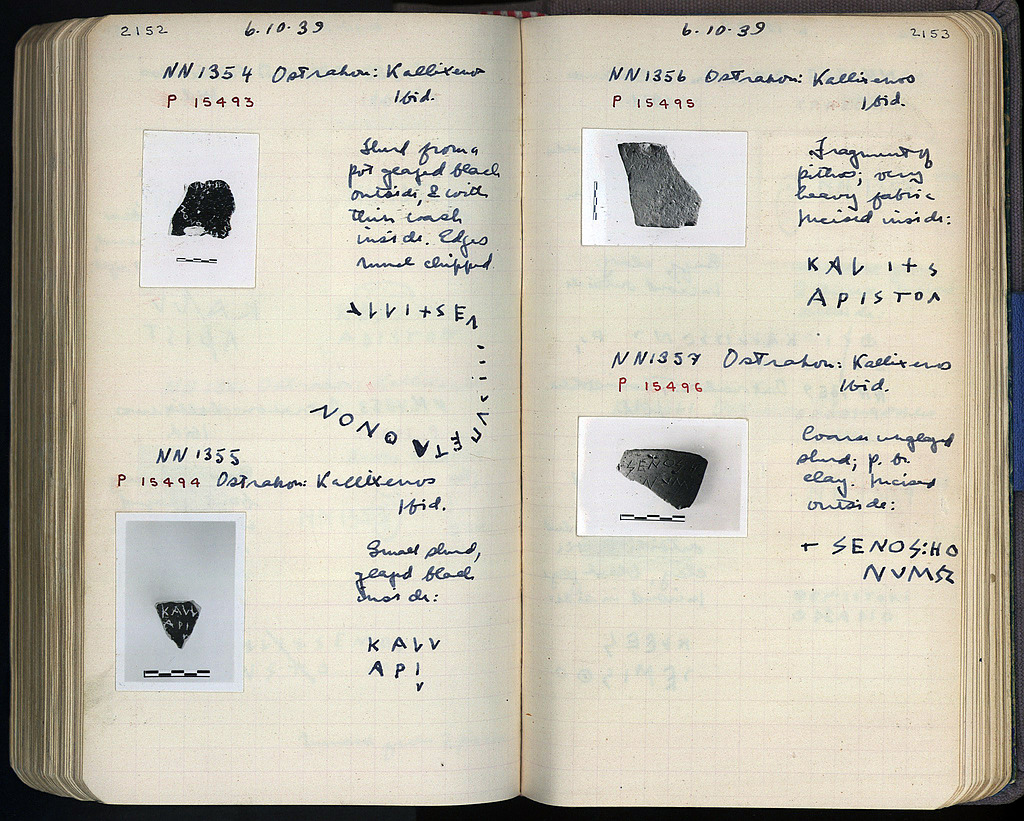 2152
6·10·39
NN1354 Ostrakon: Kallixenos
P 15493
Ibid.
Sherd from a
pot glazed black
outside, & with
thin wash
inside. Edges
much chipped.
NN 1355
P 15494 Ostrakon: Kallixenos
Ibid.
Small sherd,
glazed black
inside:
ΚΑΛΛ
ΑΡΙ
2153
6·10·39
NN1356 Ostrakon: Kallixenos
P 15495
Ibid.
Fragment of
pithos; very
heavy fabric
Incised inside:
ΑΡΙSΤΟΛ
NN1357 Ostrakon: Kallixenos
P 15496
Ibid.
Coarse unglazed
sherd; p. br.
clay. Incised
outside:
+ SENOS:HO